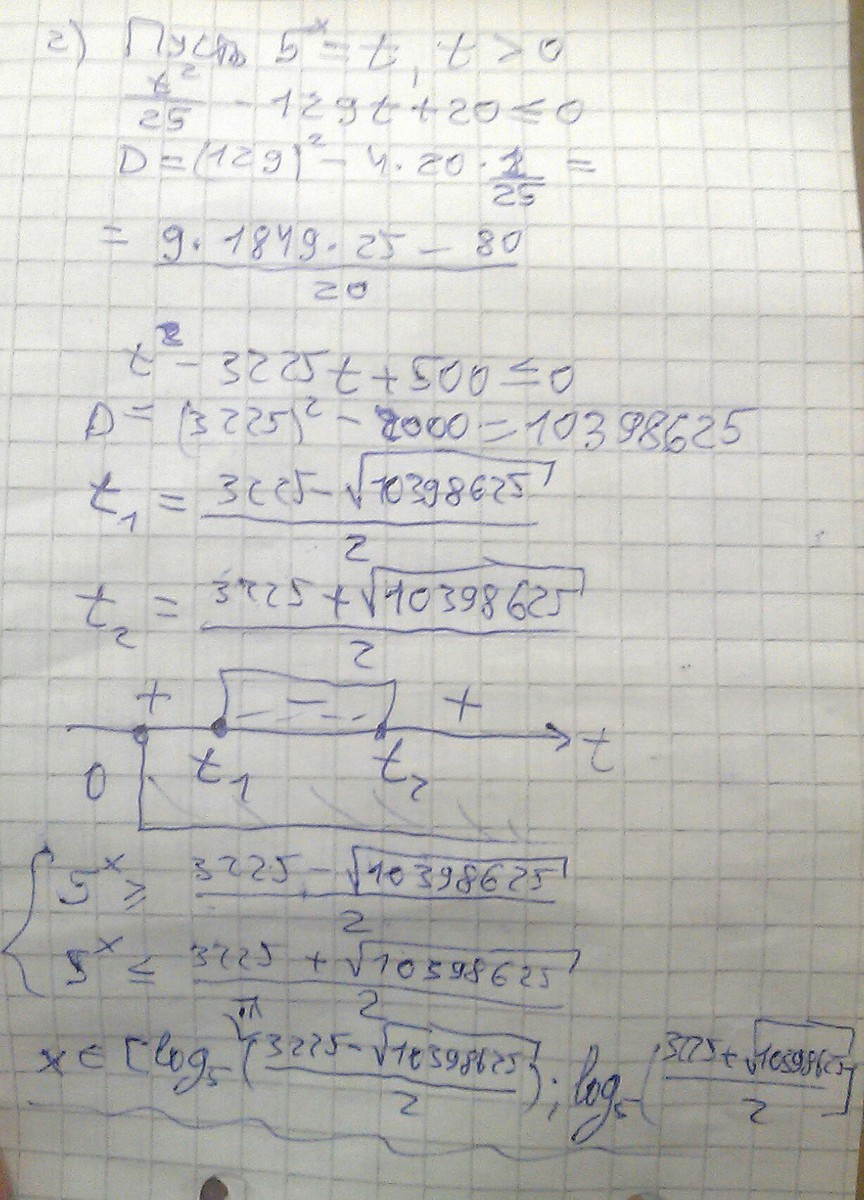 г) Пусть 5^x = t, t > 0
t²/25 - 129t + 20 ≤ 0
D = (129)² - 4 · 20 · 1/25 =
= (9 · 1849 · 25 - 80)/20
t² - 3225t + 500 ≤ 0
D = (3225)² - 2000 = 10398625
t₁ = (3225 - √10398625)/2
t₂ = (3225 + √10398625)/2
+ - +
0 t₁ t₂ t
{ 5^x ≥ (3225 - √10398625)/2
5^x ≤ (3225 + √10398625)/2
x ∈ [log₅((3225 - √10398625)/2); log₅((3225 + √10398625)/2]